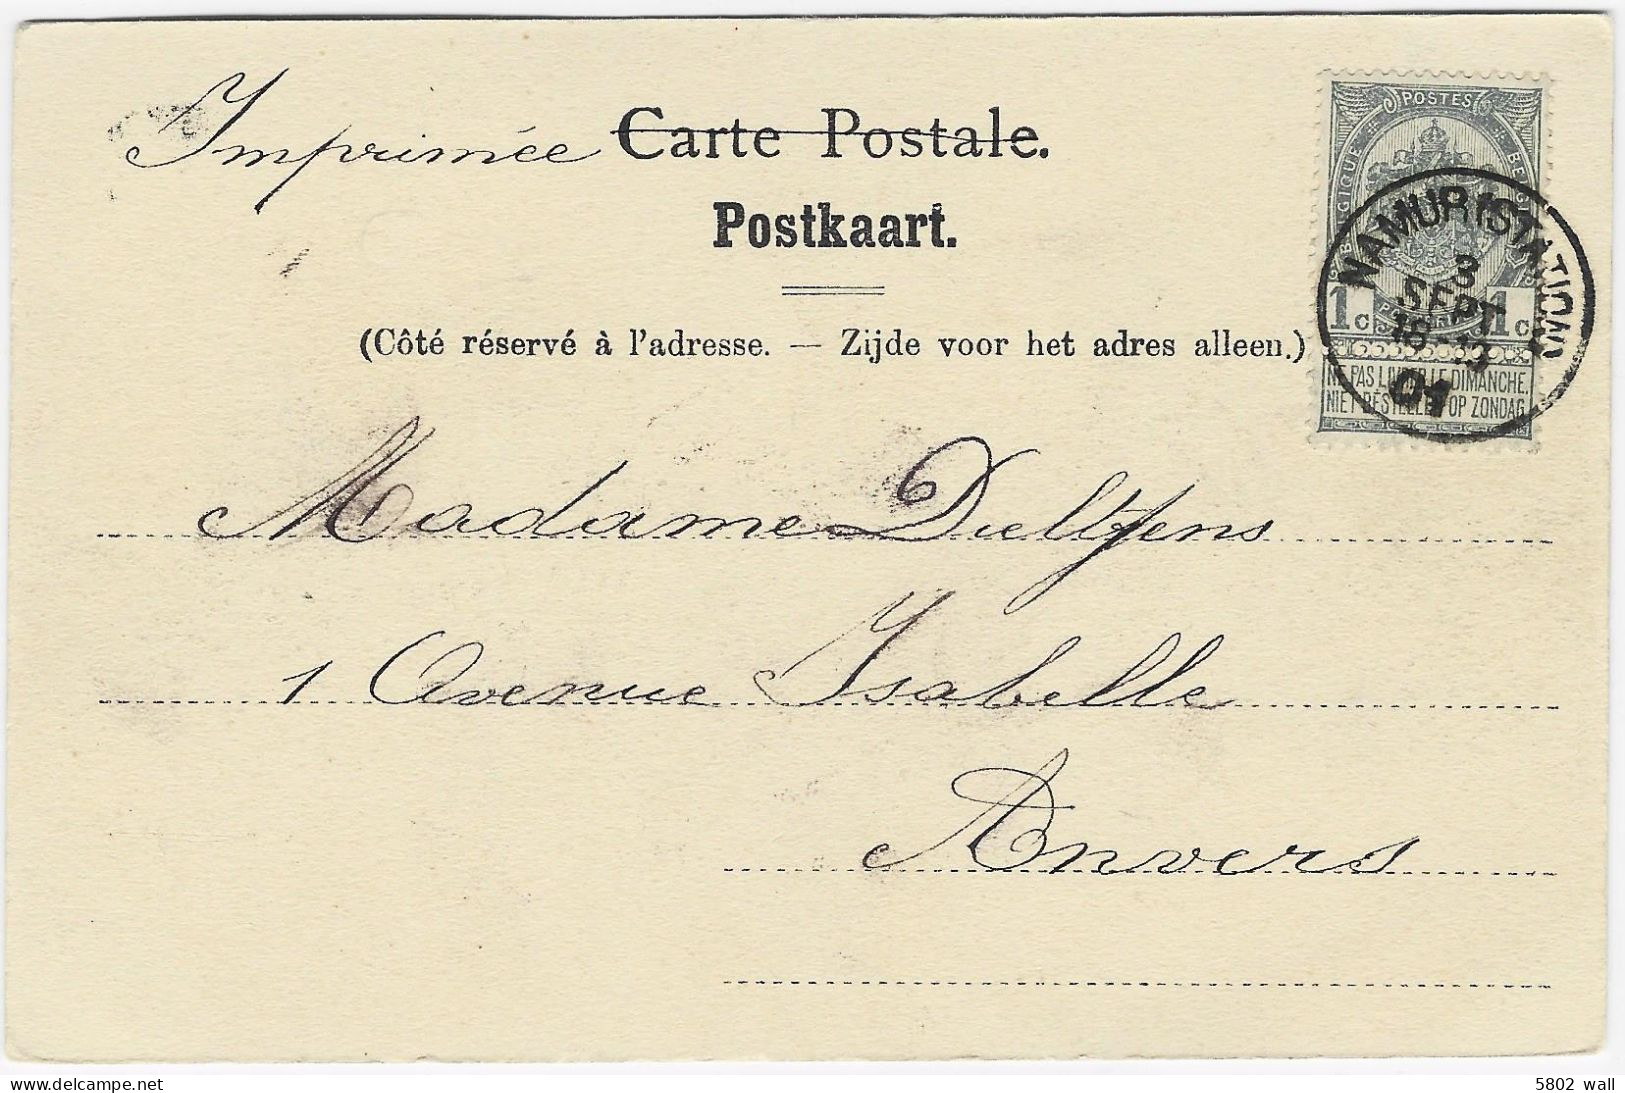 Imprimée Carte Postale.
Postkaart.
(Côté réservé à l'adresse. — Zijde voor het adres alleen.)
POSTES
BELGIQUE BELGIË
1c 1c
NE PAS LIVRER LE DIMANCHE.
NIET BESTELLEN OP ZONDAG
NAMUR (STATION)
3
SEPT
18-19
01
Madame Dieltjens
1 Avenue Isabelle
Anvers
5802 wall